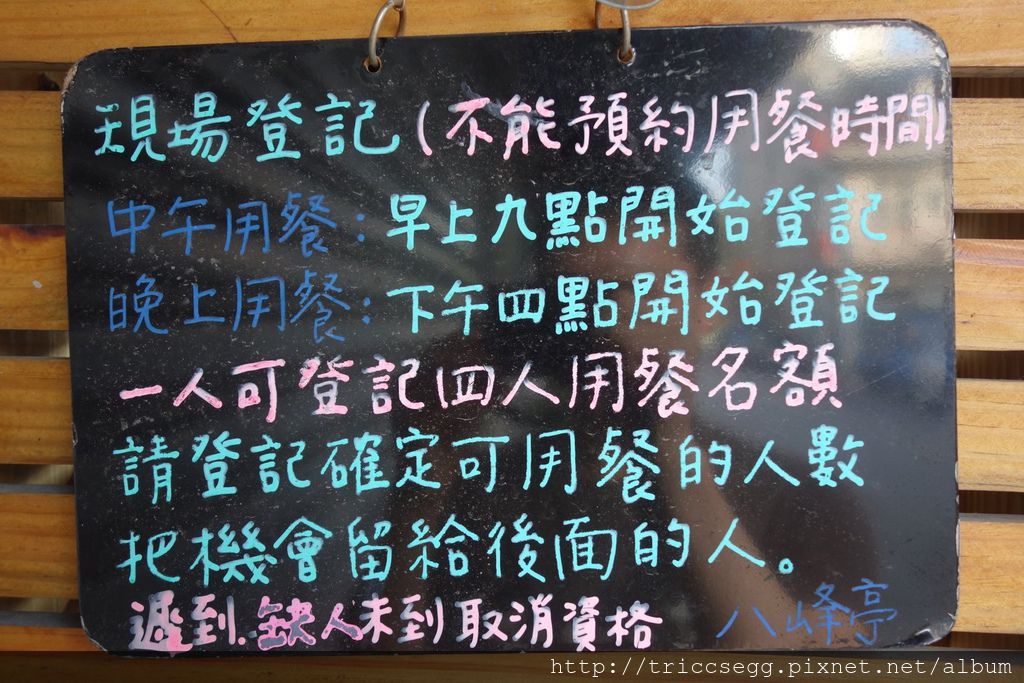 現場登記(不能預約用餐時間)
中午用餐:早上九點開始登記
晚上用餐:下午四點開始登記
一人可登記四人用餐名額
請登記確定可用餐的人數
把機會留給後面的人。
遲到.缺人未到取消資格 八峰亭
http://triccsegg.pixnet.net/album